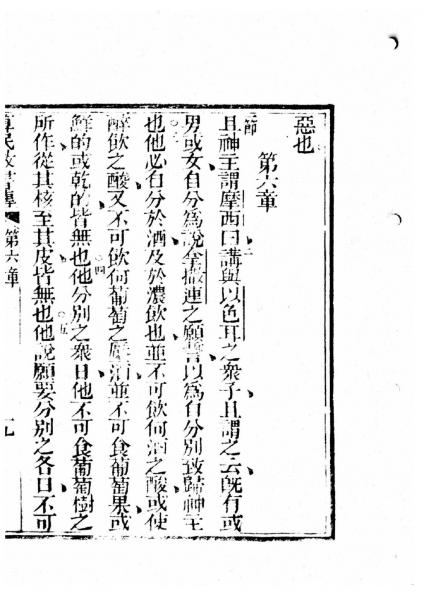 惡也
第六章
一節
且神主謂摩西曰講與以色耳之衆子且謂之云旣有或
二
男或女自分爲說拿撒連之願誓以爲自分別致歸神主
三
也他必自分於酒及於濃飲也並不可飲何酒之酸或使
醉飲之酸又不可飲何葡萄之酒並不可食葡萄果或
四
鮮的或乾的皆無也他分別之衆日他不可食葡萄樹之
五
所作從其核至其皮皆無也他說願要分別之各日不可
民數書傳 第六章 九